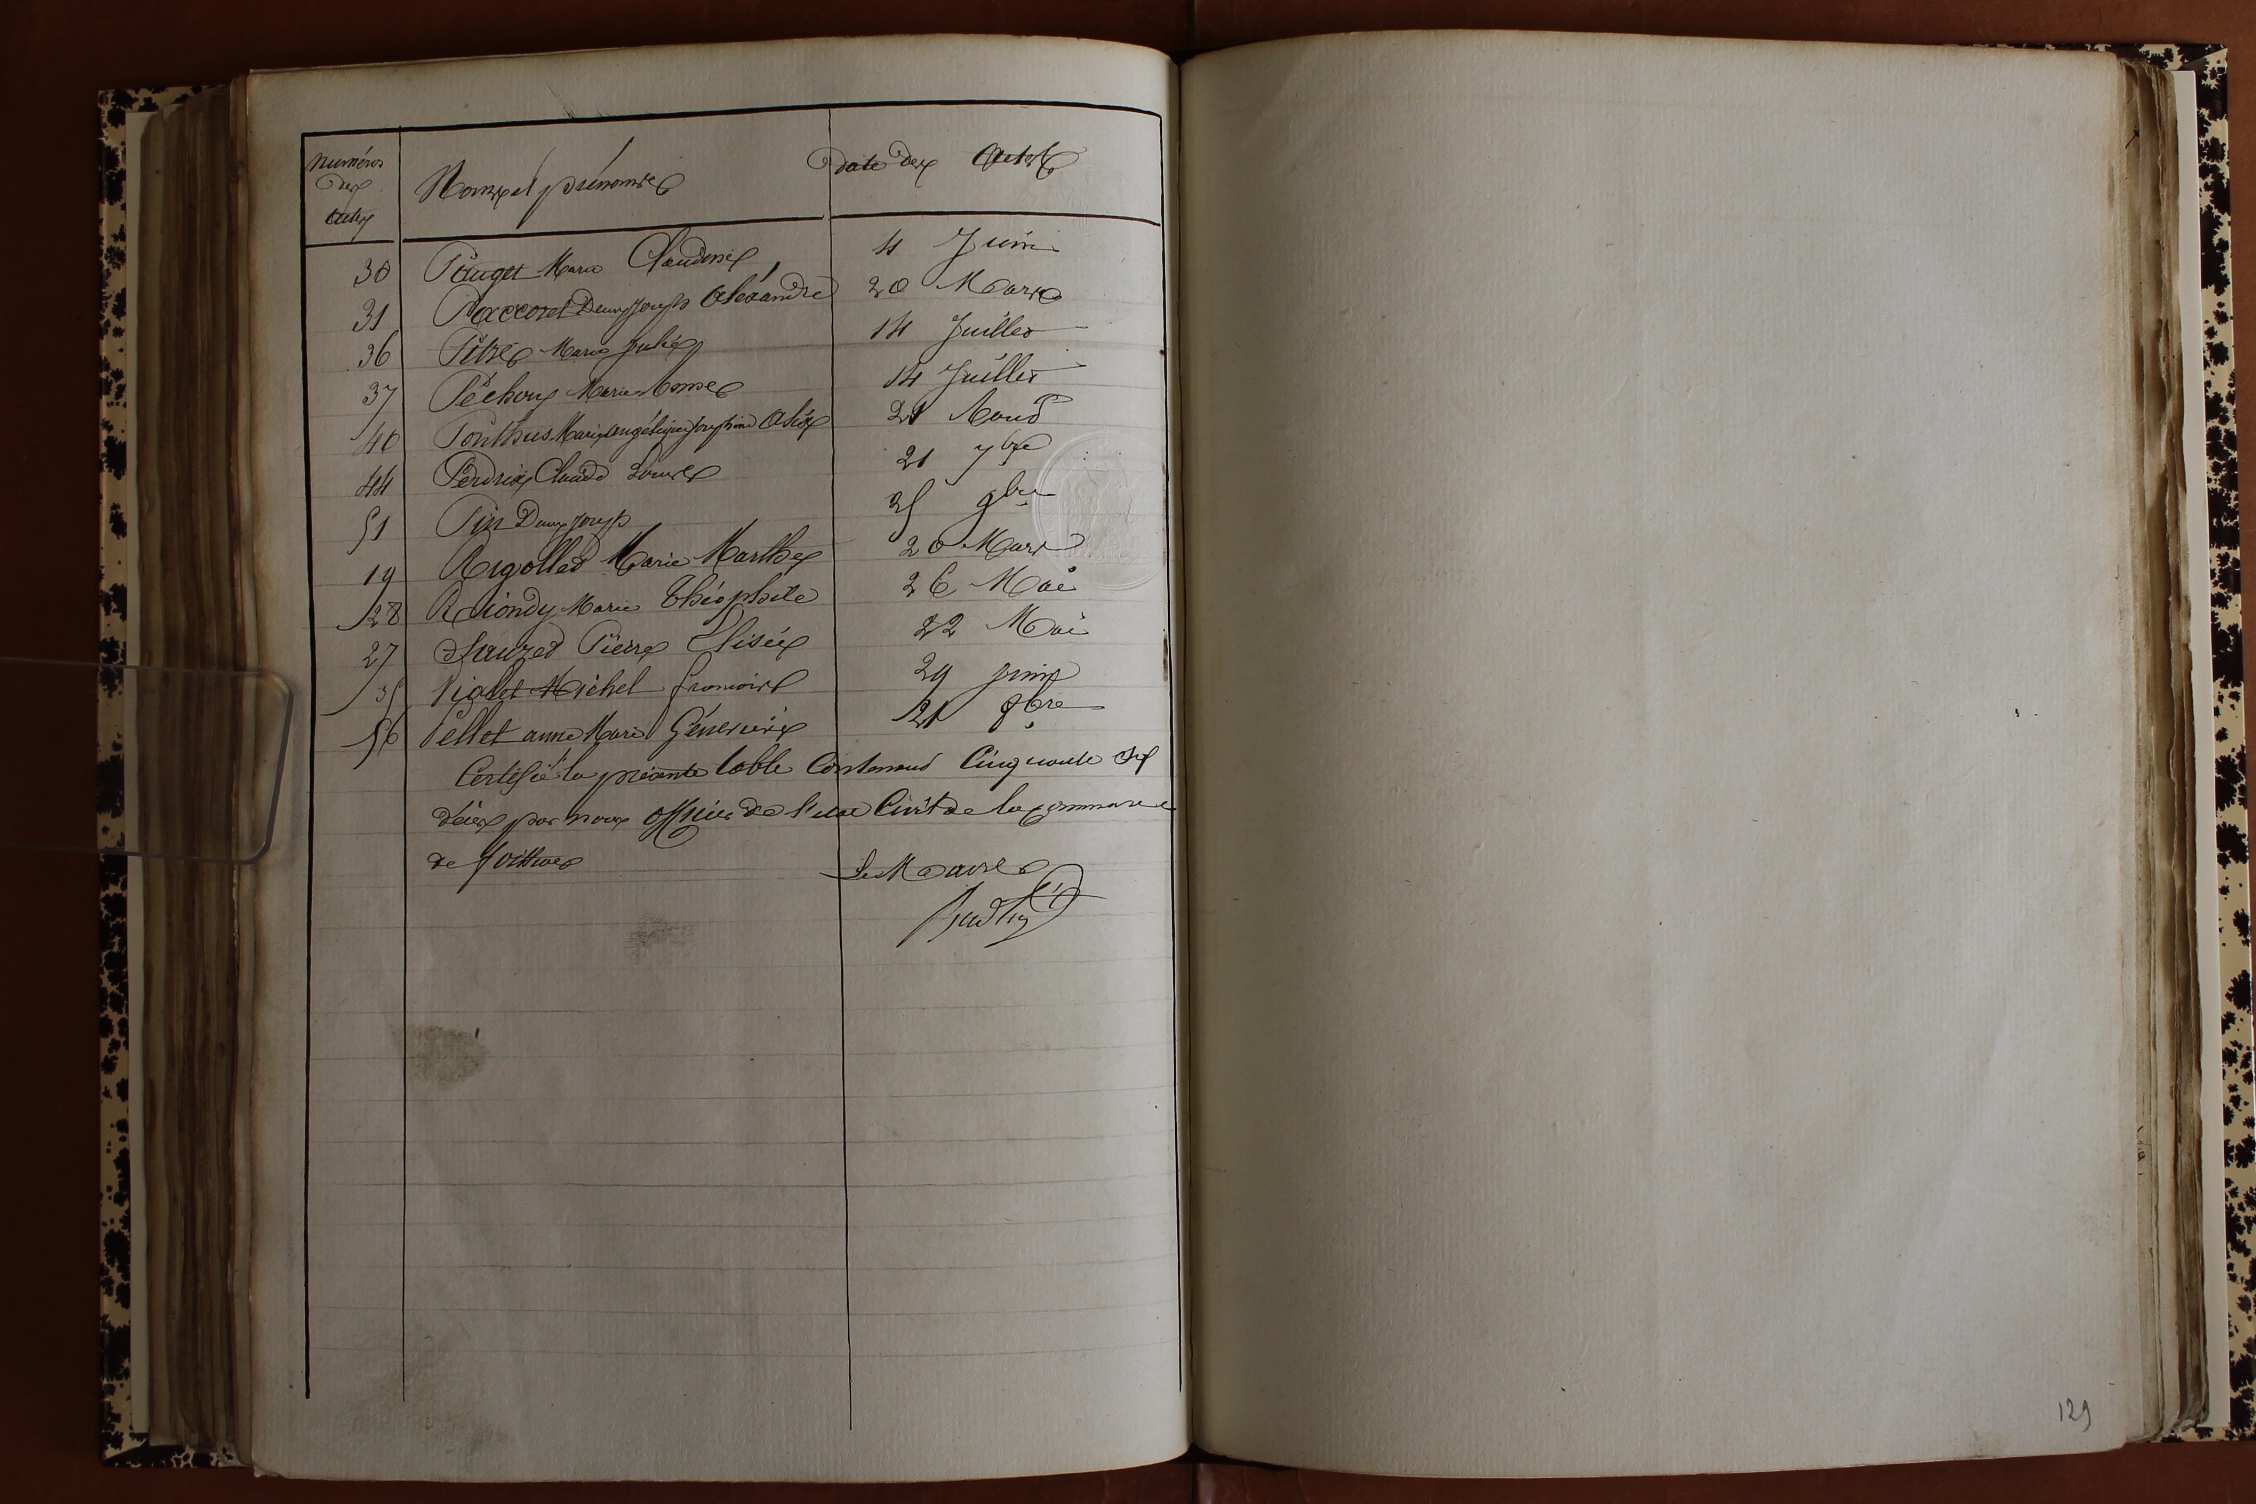 Numéros des actes Noms et prénoms date des Actes
30 Pouget Marie Claudine 4 Juin
31 Paccoret Joseph Alexandre 20 Mars
36 Pitre Marie Julie 14 Juillet
37 Péchoux Marie Anne 14 Juillet
40 Ponthus Marie Angélique Joséphine Alix 21 Aout
44 Perdrix Claude Louis 21 7bre
51 Pin Joseph 25 9bre
19 Rigollet Marie Marthe 20 Mars
28 Riondy Marie Théophile 26 Mai
27 Sauzet Pierre Elisée 22 Mai
35 Violet Michel François 29 juin
56 Pellet anne Marie Geneviève 21 Xbre
Certifié la présente table Contenant Cinquante Six
décès par nous officier de l'etat Civil de la commune
de
Le Maire
129